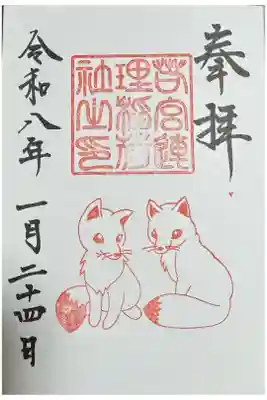 奉拝
苅宮連
理稲荷
社之印
令和八年 一月二十四日